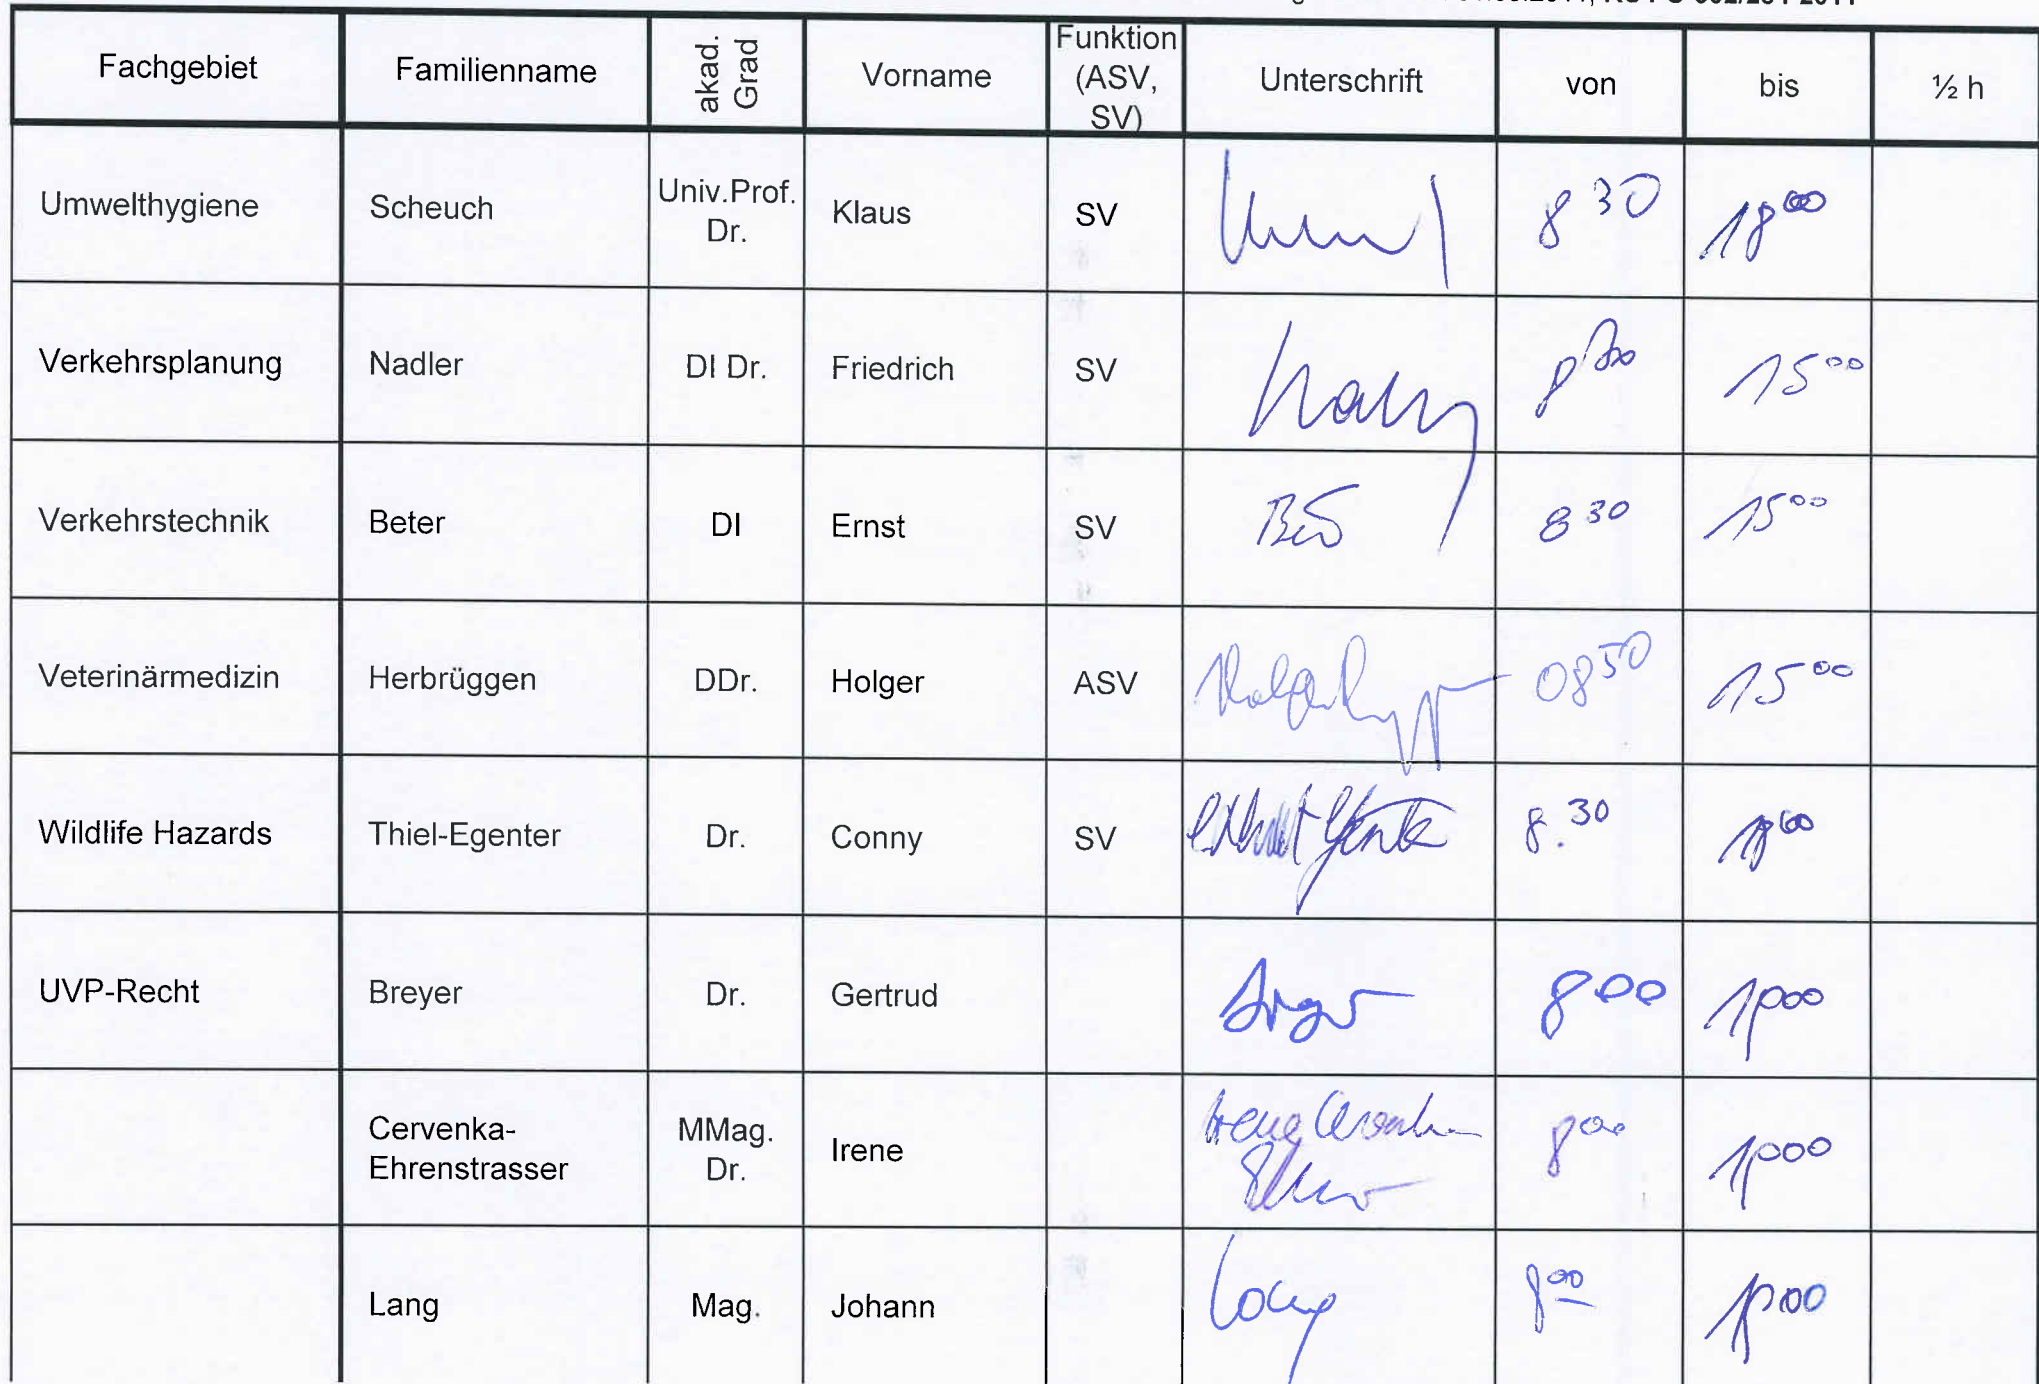 Fachgebiet Familienname akad. Grad Vorname Funktion (ASV, SV) Unterschrift von bis ½ h
Umwelthygiene Scheuch Univ.Prof. Dr. Klaus SV 8 30 18 00
Verkehrsplanung Nadler DI Dr. Friedrich SV 15 00
Verkehrstechnik Beter DI Ernst SV 8 30 15 00
Veterinärmedizin Herbrüggen DDr. Holger ASV 08 50 15 00
Wildlife Hazards Thiel-Egenter Dr. Conny SV 8. 30 18 00
UVP-Recht Breyer Dr. Gertrud 8 00 18 00
Cervenka-Ehrenstrasser MMag. Dr. Irene 8 00 18 00
Lang Mag. Johann Lang 8 00 18 00